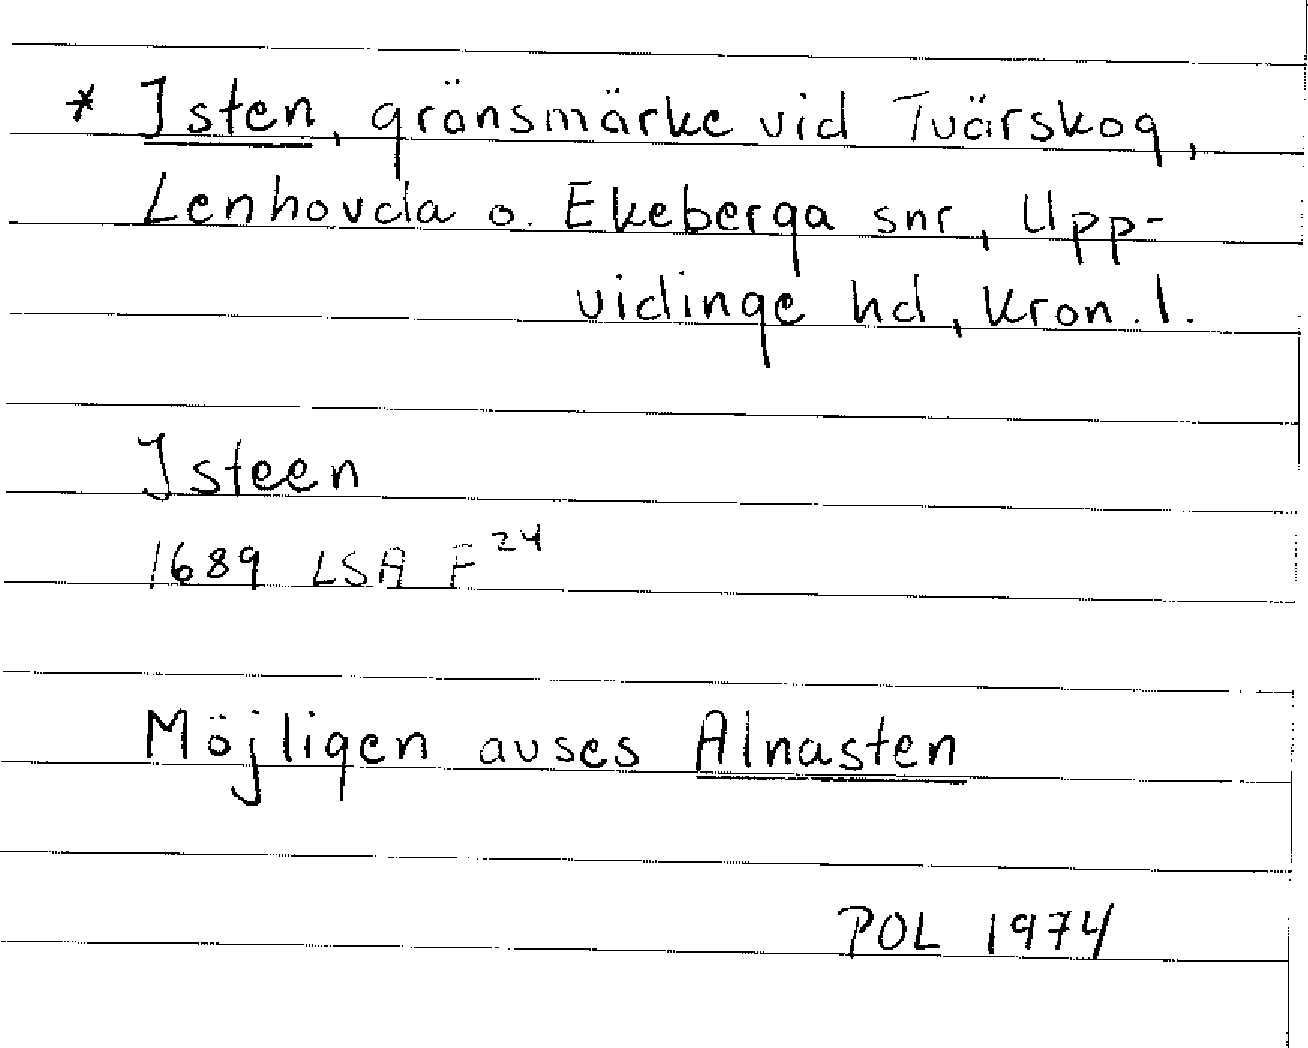 * Isten, gränsmärke vid Tvärskog,
Lenhovda o. Ekeberga snr, Upp-
vidinge hd, Kron. l.
Isteen
1689 LSA F 24
Möjligen avses Alnasten
POL 1974